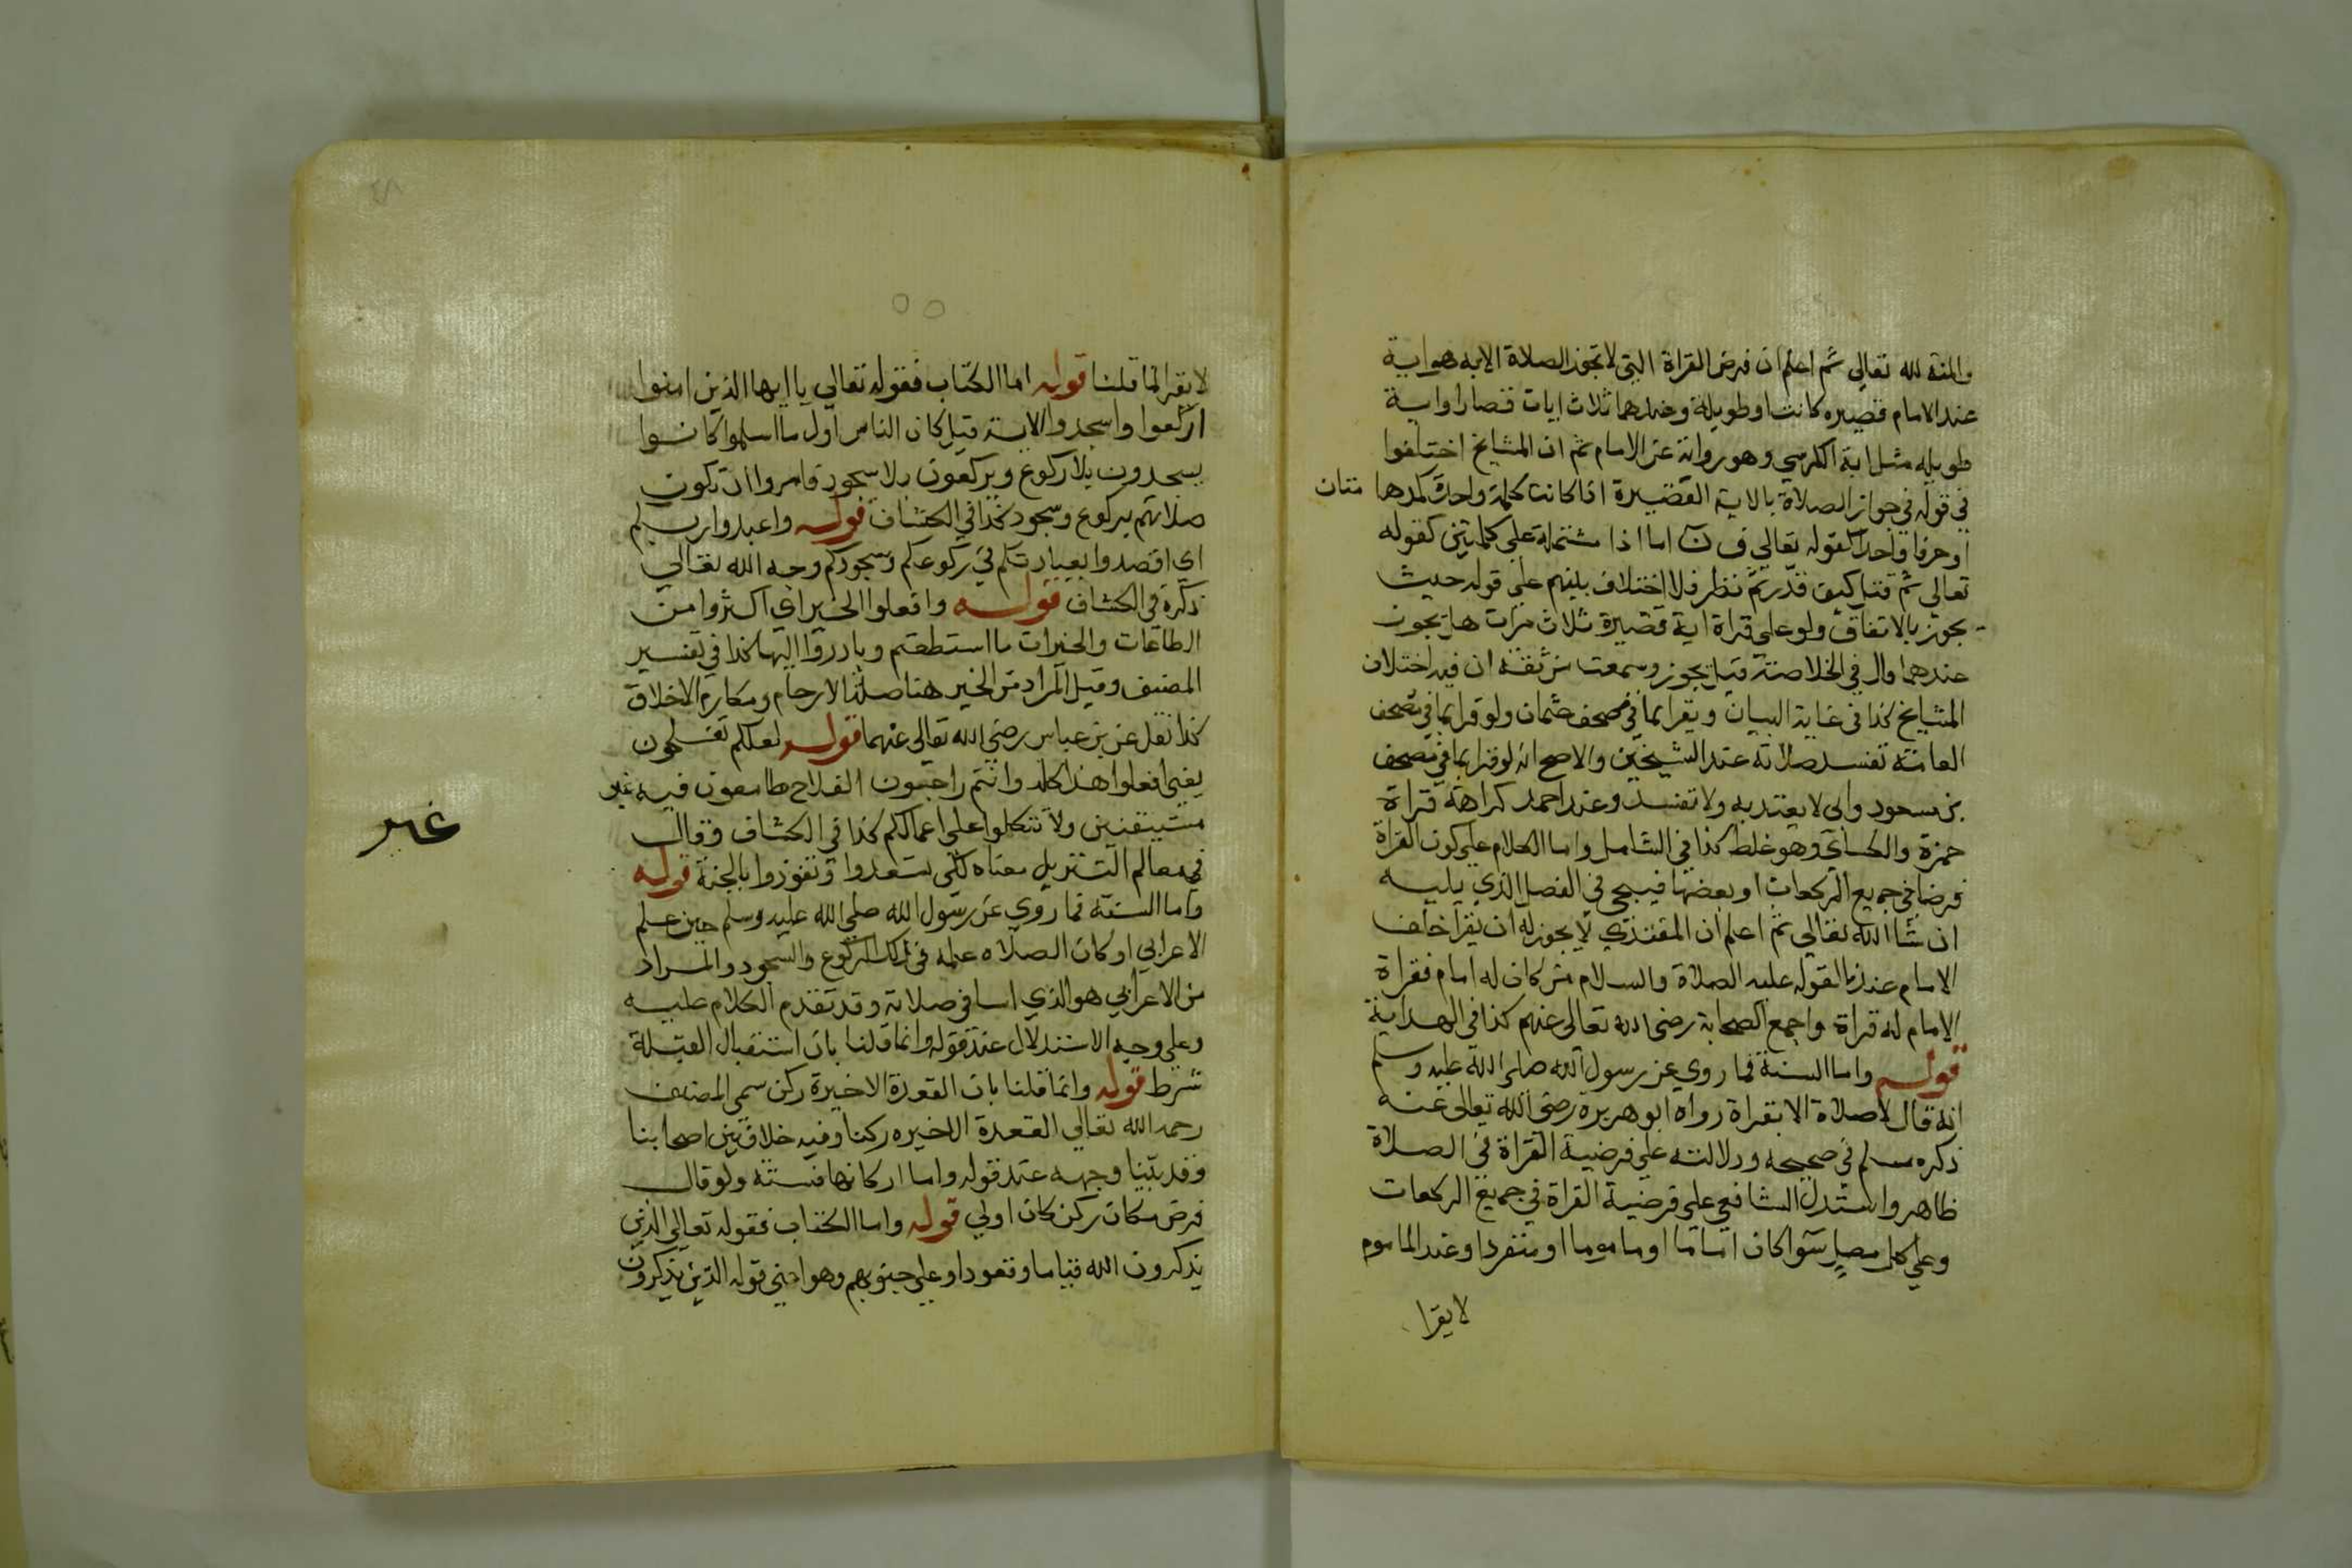 والمنة لله تعالى ثم اعلم ان فرض القراة التي لا تجوز الصلاة الا به هو اية
عند الامام قصيره كانت او طويلة وعندهما ثلاث ايات قصار او اية
طويله مثل اية الكرسي وهو رواية عن الامام ثم ان المشايخ اختلفوا
في قوله في جواز الصلاة بالاية القصيرة اذا كانت كلمة واحدة كمدها متان
او حرفا واحدا كقوله تعالى ق ن اما اذا مشتملة على كلمتين كقوله
تعالى ثم قتل كيف قدر ثم نظر فلا اختلاف بينهم على قوله حيث
يجوز بالاتفاق ولو على قراة اية قصيرة ثلاث مرات هل يجوز
عندهما قال في الخلاصة قيل يجوز وسمعت من ثقة ان فيه اختلاف
المشايخ كذا في غاية البيان ويقرا بما في مصحف عثمان ولو قرا بما في مصحف
العامة تفسد صلاته عند الشيخين والاصح انه لو قرا بما في مصحف
بن مسعود وابي لا يعتد به ولا تفسد وعند احمد كراهة قراة
حمزة والكسائي وهو غلط كذا في الشامل واما الكلام على كون القراة
فرضا في جميع الركعات او بعضها فيجي في الفصل الذي يليه
ان شا الله تعالى ثم اعلم ان المقتدي لا يجوز له ان يقرا خلف
الامام عندنا لقوله عليه الصلاة والسلام من كان له امام فقراة
الامام له قراة واجمع الصحابة رضى الله تعالى عنهم كذا في الهداية
قوله واما السنة فما روي عن رسول الله صلى الله عليه وسلم
انه قال لا صلاة الا بقراة رواه ابو هريرة رضى الله تعالى عنه
ذكره مسلم في صحيحه ودلالته على فرضية القراة في الصلاة
ظاهر واستدل الشافعي على فرضية القراة في جميع الركعات
وعلى كل مصل سوا كان اماما او ماموما او منفردا وعند الماموم
لا يقرا
لا يقرا لما قلنا قوله اما الكتاب فقوله تعالى يا ايها الذين امنوا
اركعوا واسجدوا الاية قيل كان الناس اول ما اسلموا كانوا
يسجدون بلا ركوع ويركعون بلا سجود فامروا ان تكون
صلاتهم بركوع وسجود كذا في الكشاف قوله واعبدوا ربكم
اي اقصدوا بعبادتكم في ركوعكم وسجودكم وجه الله تعالى
ذكره في الكشاف قوله وافعلوا الخير اي اكثروا من
الطاعات والخيرات ما استطعتم وبادروا اليها كذا في تفسير
المصنف وقيل المراد من الخير هنا صلة الارحام ومكارم الاخلاق
كذا نقل عن بن عباس رضى الله تعالى عنهما قوله لعلكم تفلحون
يعني افعلوا هذا كله وانتم راجون الفلاح طامعون فيه غير
غير
مستيقنين ولا تتكلوا على اعمالكم كذا في الكشاف وقال
في معالم التنزيل معناه لكي تسعدوا وتفوزوا بالجنة قوله
واما السنة فما روي عن رسول الله صلى الله عليه وسلم حين علم
الاعرابي اركان الصلاه علمه في ذلك الركوع والسجود والمراد
من الاعرابي هو الذي اسا في صلاته وقد تقدم الكلام عليه
وعلى وجه الاستدلال عند قوله وانما قلنا بان استقبال القبلة
شرط قوله وانما قلنا بان القعدة الاخيرة ركن سمى المصنف
رحمه الله تعالى القعدة الاخيره ركنا وفيه خلاف بين اصحابنا
وقد بينا وجهه عند قوله واما اركانها فستة ولو قال
فرض مكان ركن كان اولى قوله واما الكتاب فقوله تعالى الذين
يذكرون الله قياما وقعودا وعلى جنوبهم وهو اعني قوله الذين يذكرون